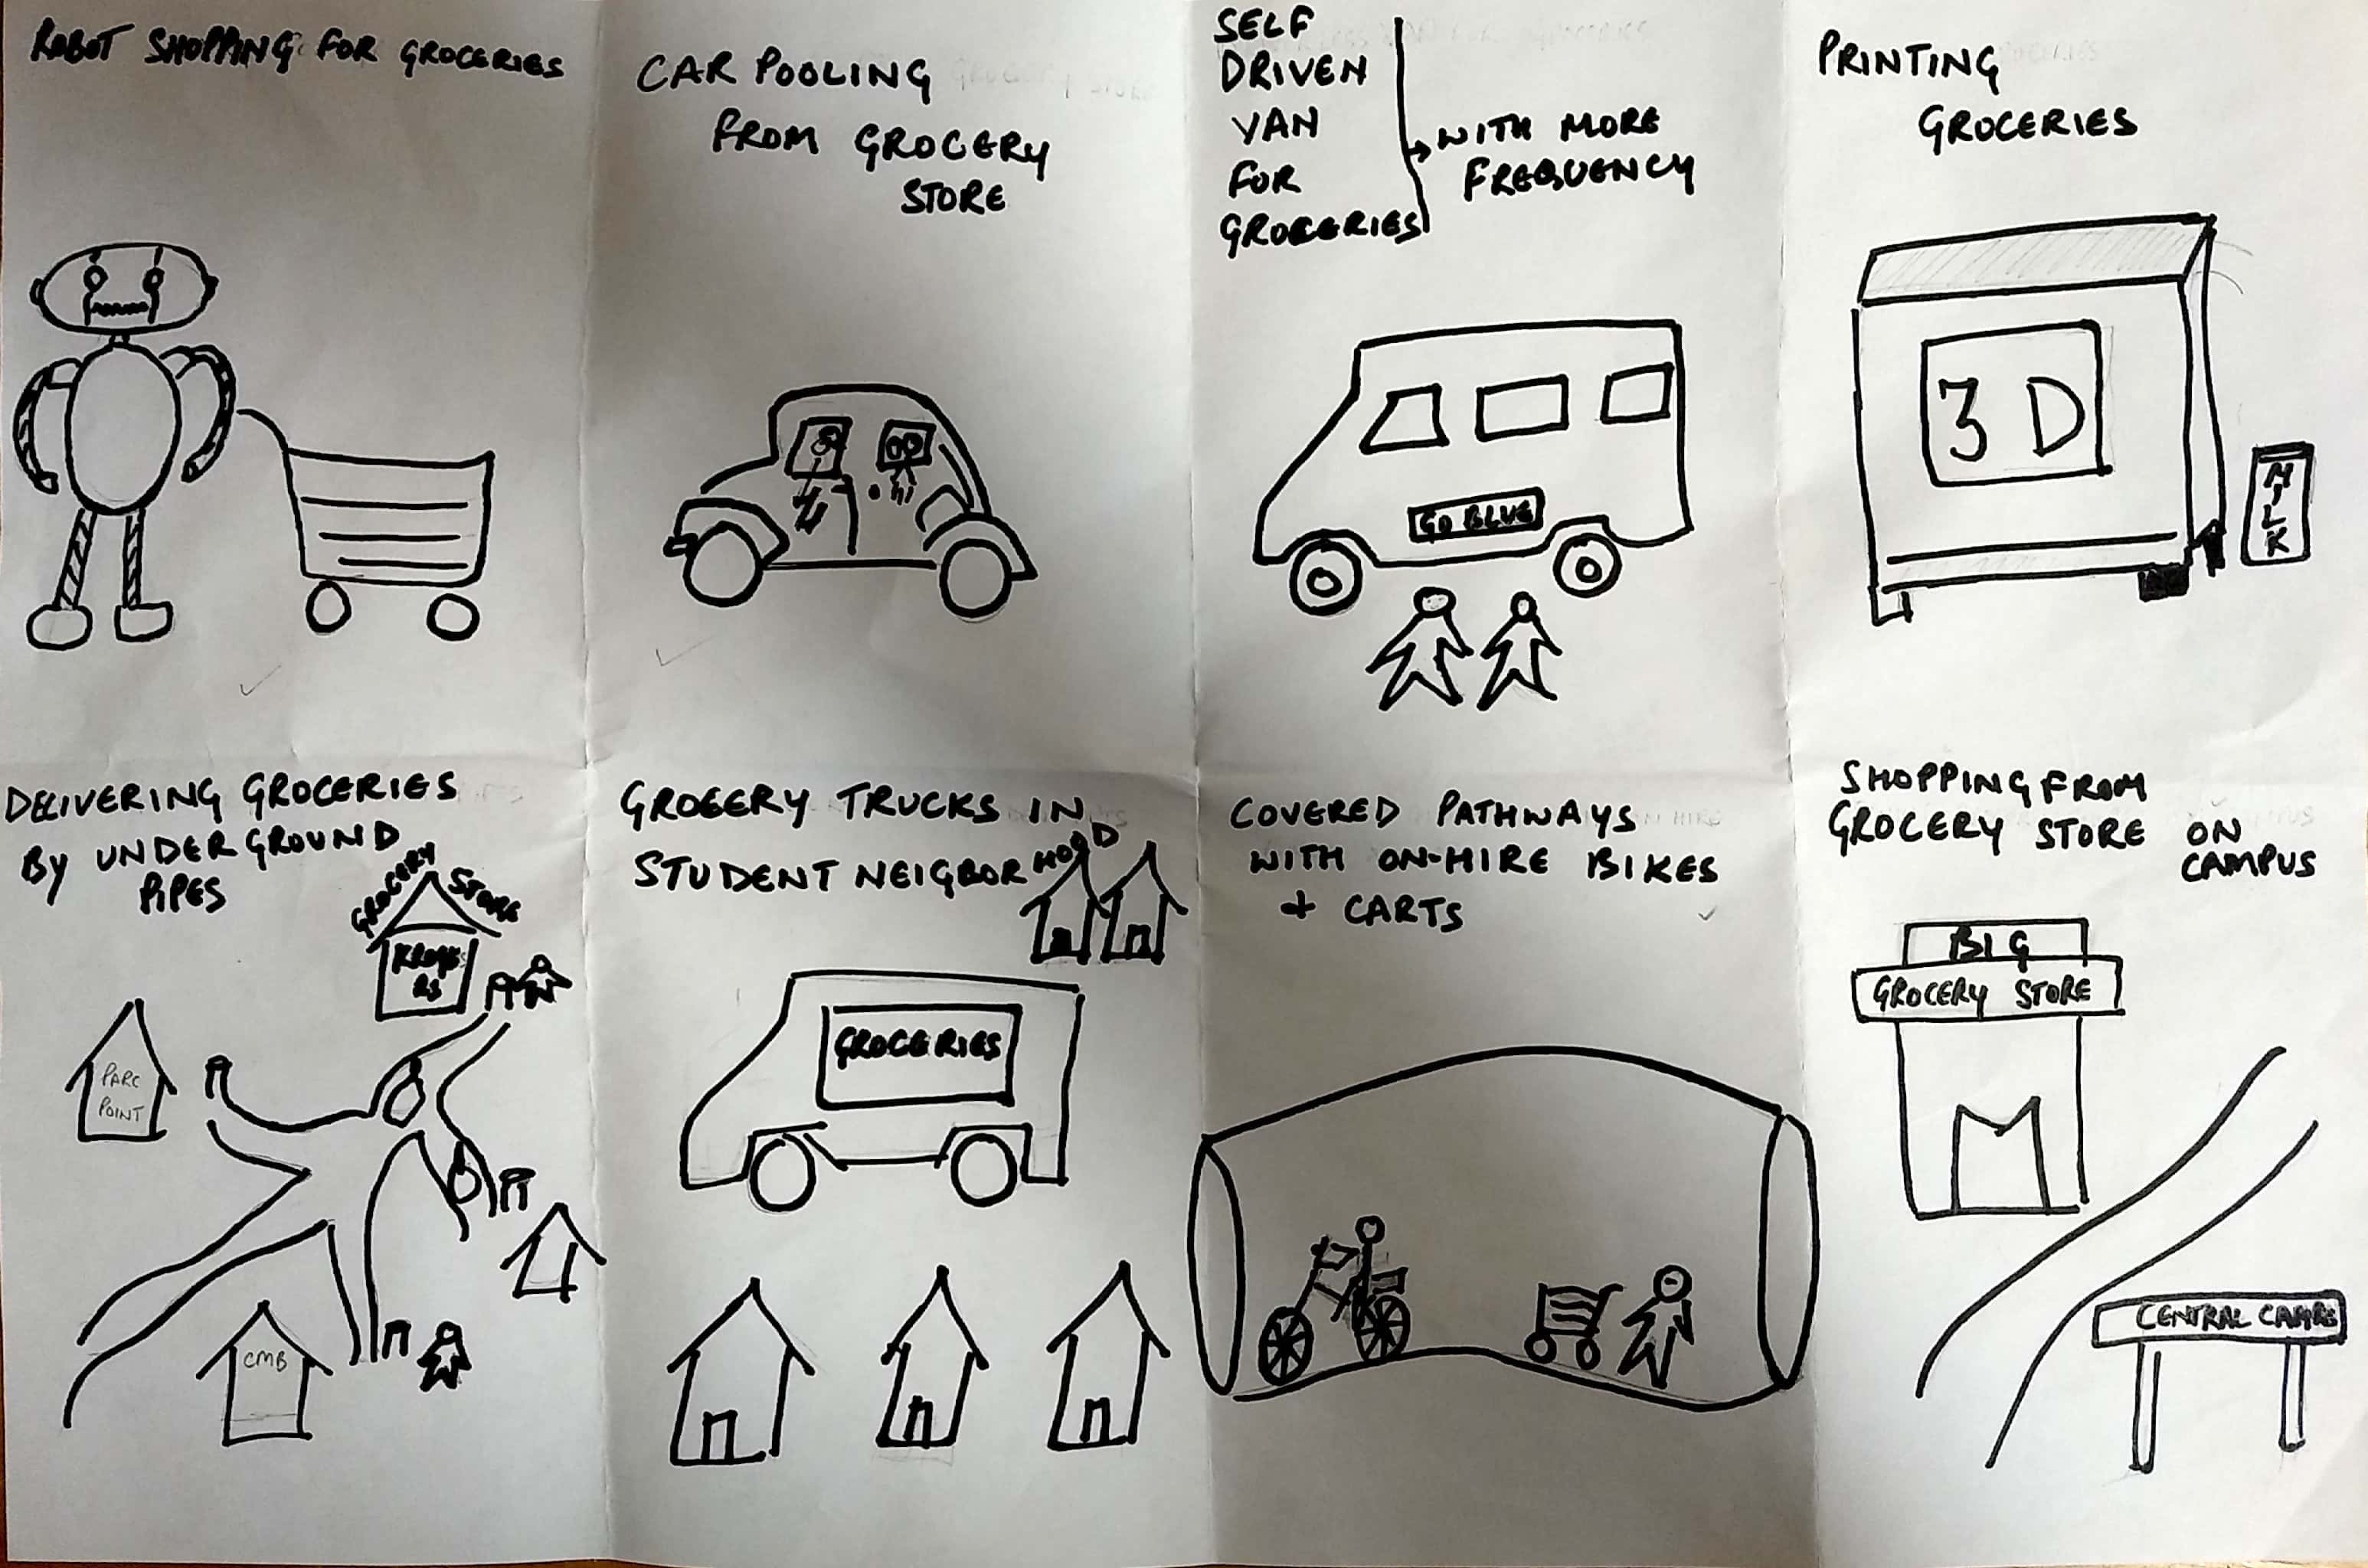 ROBOT SHOPPING FOR GROCERIES
CAR POOLING
FROM GROCERY
STORE
SELF
DRIVEN
VAN
FOR
GROCERIES
WITH MORE
FREQUENCY
GO BLUE
PRINTING
GROCERIES
3D
MILK
DELIVERING GROCERIES
BY UNDERGROUND
PIPES
GROCERY STORE
KROGE
RS
PARC
POINT
CMB
GROCERY TRUCKS IN
STUDENT NEIGBORHOOD
GROCERIES
COVERED PATHWAYS
WITH ON-HIRE BIKES
+ CARTS
SHOPPING FROM
GROCERY STORE ON
CAMPUS
BIG
GROCERY STORE
CENTRAL